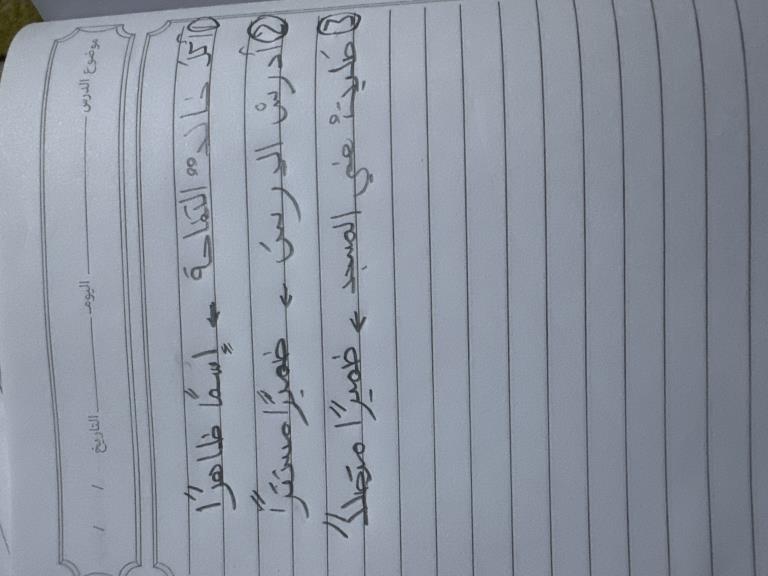 موضوع الدرس اليوم التاريخ / /
① أكل خالد التفاحة ← إسمًا ظاهرًا
② أدرس الدرس ← ضميرًا مستترًا
③ صليت في المسجد ← ضميرًا متصلاً